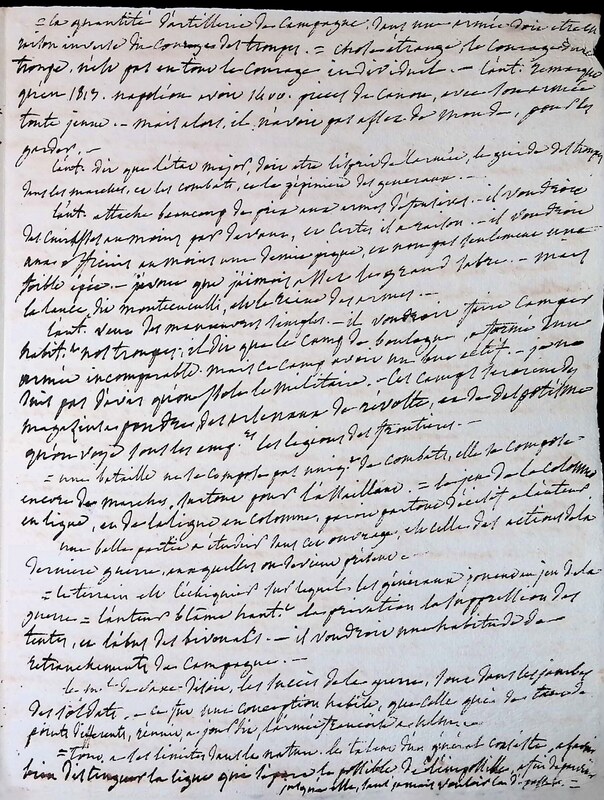 = la quantité d'artillerie de Campagne, dans une armée doit etre en
raison inverse du Courage des troupes. = chose étrange, le Courage d'une
troupe, n'est pas en tout le Courage individuel. — l'aut. remarque
qu'en 1813. napoléon avoit 1400. pieces de Canon, avec son armée
toute jeune — mais alors, il n'avoit pas assez de monde, pour les
garder, —
l'aut. dit que l'état major, doit etre l'esprit de l'armée, le guide des troupes
dans les marches, et les combats, et la pépinière des generaux. —
l'aut. attache beaucoup de prix aux armes défensives. — il voudroit
des Cuirasses au moins par devant, et certes il a raison. — il voudroit
aux officiers au moins une demie pique, et non pas seulement une
foible épée. — j'avoue que j'aimois assez le grand sabre. — mais
la lance, dit montecuculli, est la Reine des armes. —
l'aut. veut des manœuvres simples. — il voudroit faire Camper
habit.t nos troupes; il dit que le Camp de boulogne, a formé une
armée incomparable. mais ce Camp avoit un but actif. — je ne
suis pas d'avis qu'on isole le militaire. — Ces camps seroient des
magazins a poudre, des arsenaux de révolte, et de despotisme
qu'on voye sous les emp.rs les legions des frontieres. —
= une bataille ne se compose pas uniq.t de combats, elle se compose
encore de marches, surtout pour l'assaillant = le jeu de la Colonne
en ligne, et de la ligne en Colonne, paroit partout décisif a l'auteur
une belle partie a étudier dans cet ouvrage, est celle des actions de la
derniere guerre, auxquelles on devient présent. =
= le terrain est l'échiquier sur lequel, les généraux jouent au jeu de la
guerre = l'auteur blâme haut.t la privation la suppression des
tentes, et l'abus des bivouacs. — il voudroit une habitude de
retranchements de Campagne. —
le m.al de Saxe disoit, les succès de la guerre, sont dans les jambes
des soldats. — ce fut une conception habile, que celle qui de
points differents, réunit, a jour fixe, l'armée françoise a
= tout a ses limites dans la nature. le talent d'un général consiste, a savoir
bien distinguer la ligne que sépare le possible de l'impossible, afin de parvenir
jusqu'a elle, sans jamais vouloir la dépasser. =